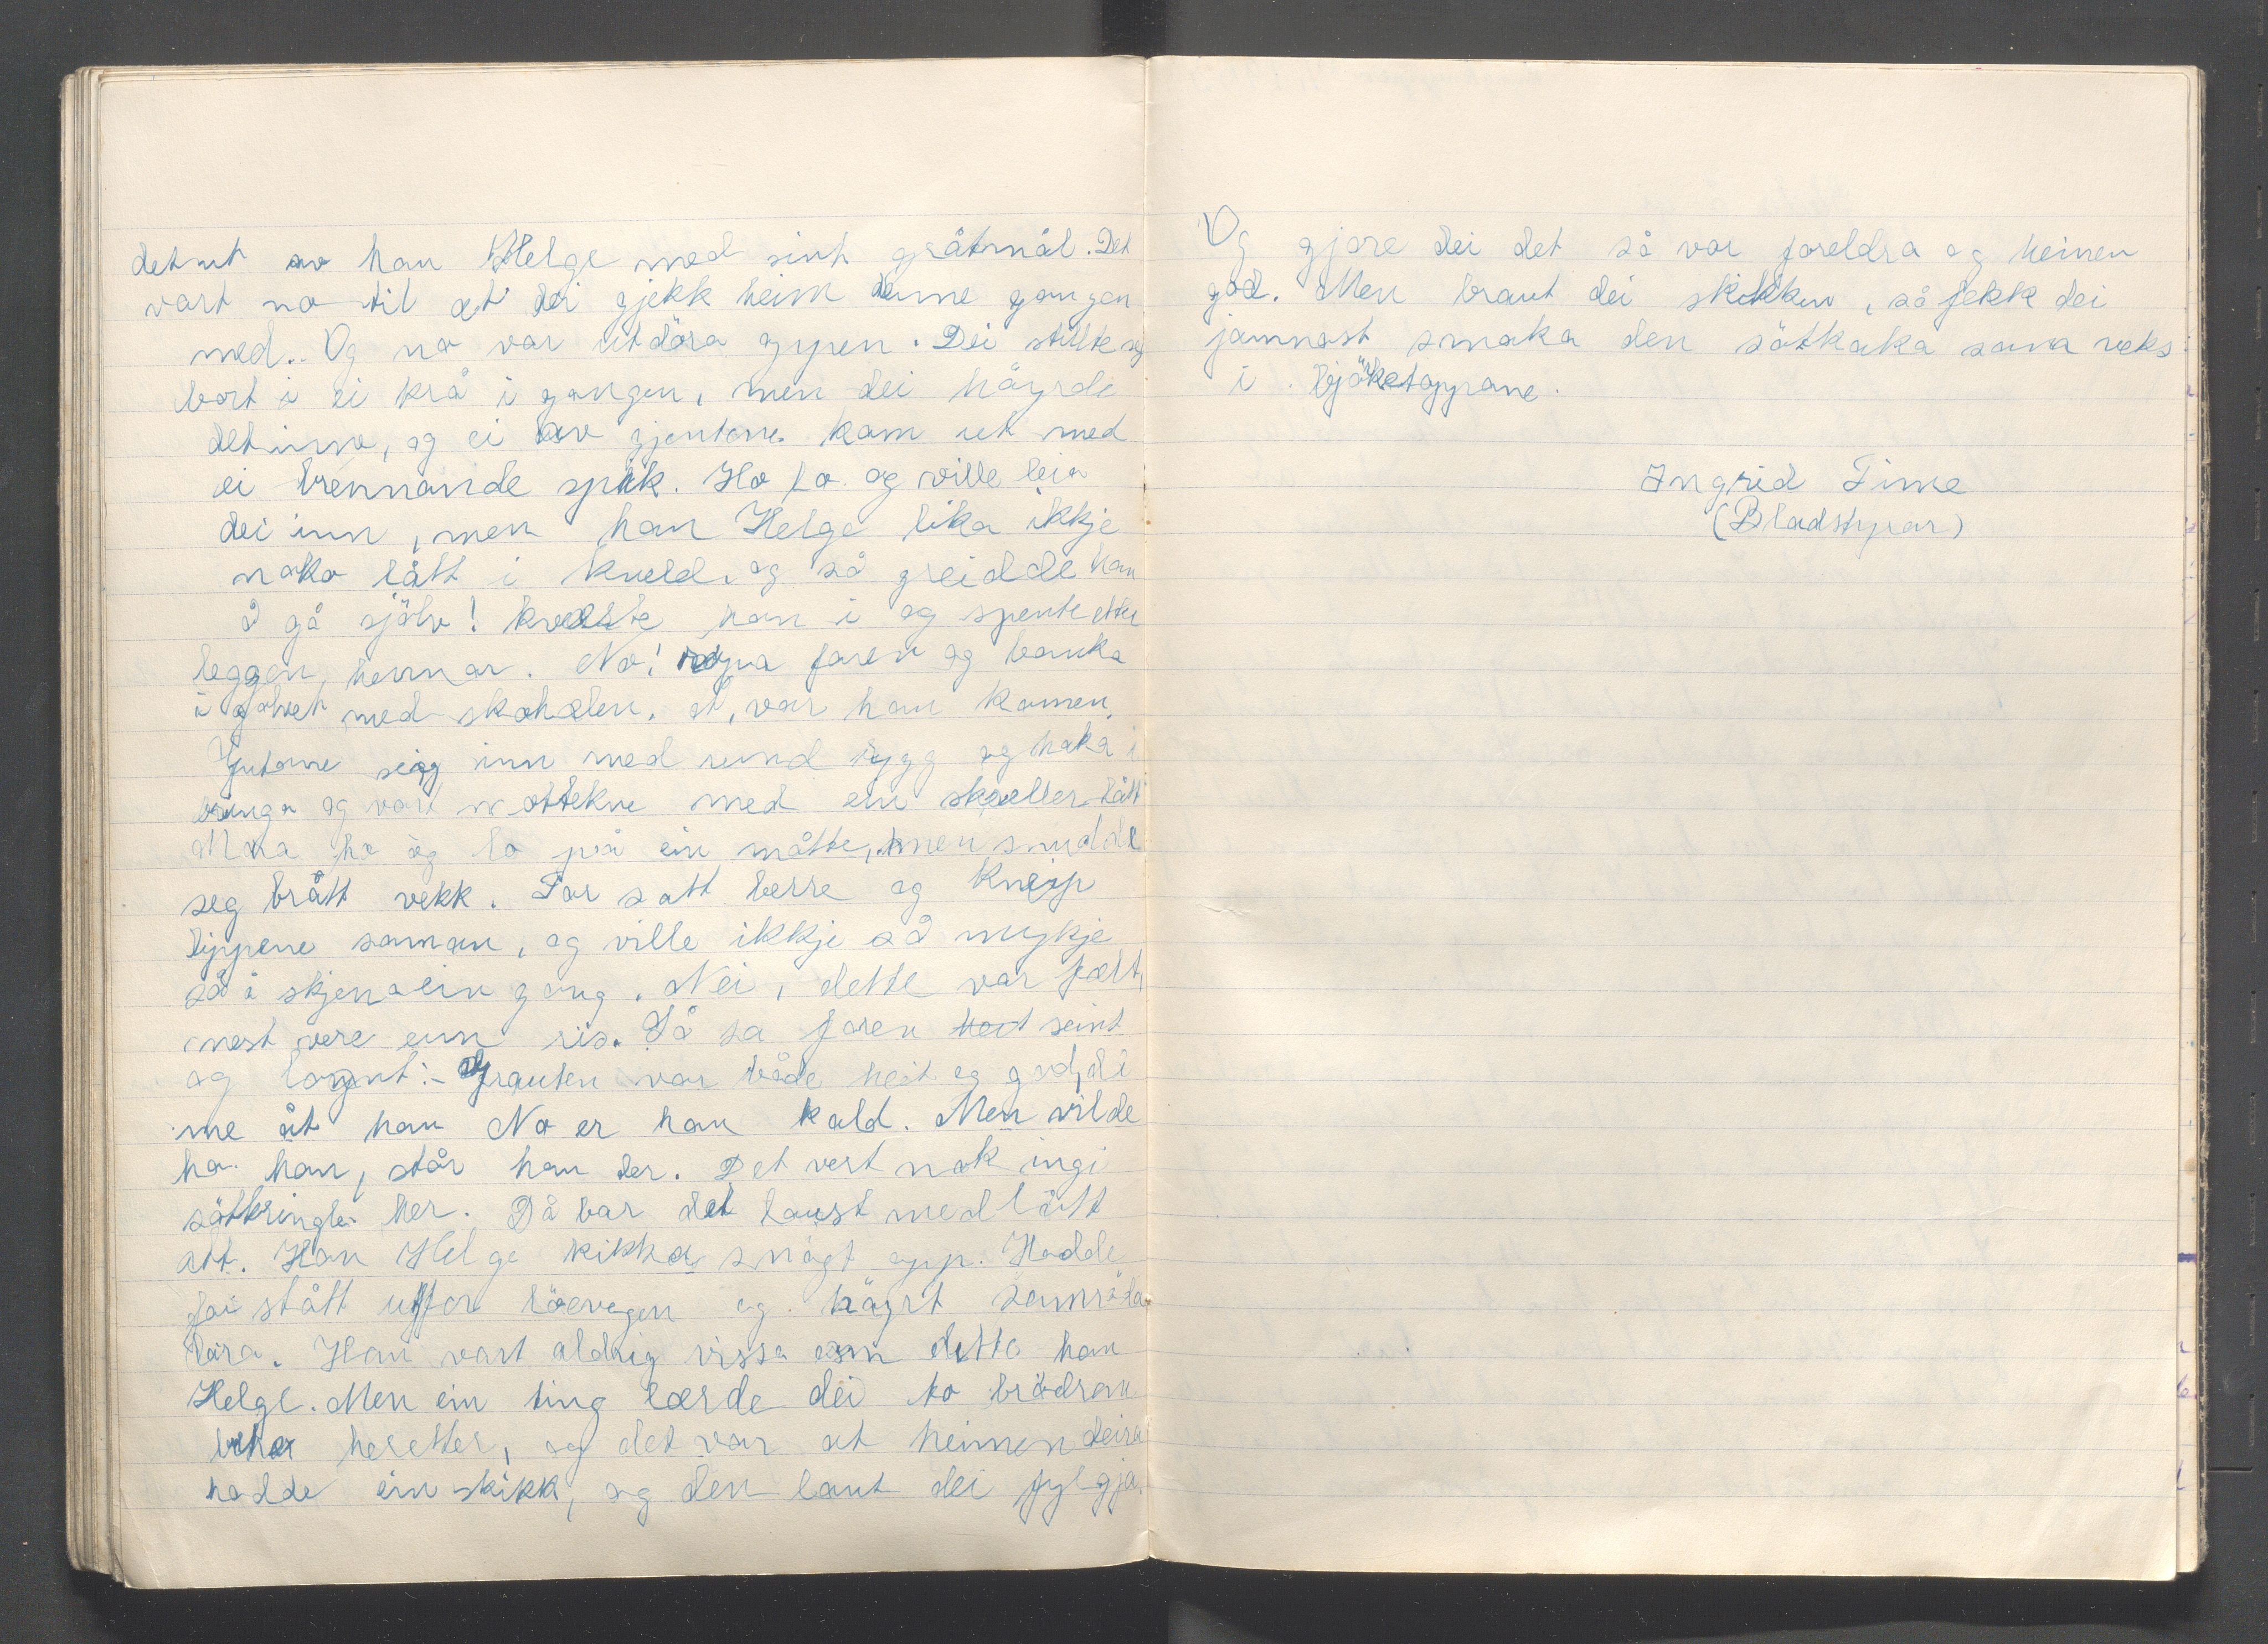 det ut av han Helge med sint gråtmål. Det
vart no til at dei gjekk heim denne gangen
med.. Og no var utdöra oppen. Dei stillte seg
bort i ei krå i gangen, men dei höyrde
det inno, og ei av gjentone kom ut med
ei brennande spik. Ho lo og ville leia
dei inn, men han Helge lika ikkje
noko lått i kveld, og så greidde han
å gå sjölv! kveste han i og spente etter
leggen hennar. No! ropa faren og banka
i golvet med skohælen. at, var han komen.
Gutane seig inn med rund rygg og haka i
bringa og vart mottekne med ein skrellerlått
Mora ho òg lo på ein måtte, men snudde
seg brått vekk. Far satt berre og kneip
lippene saman, og ville ikkje så mykje
så å skjena ein gong. Nei, dette var fælt,
mest vere enn ris. Så sa faren seint
og langt: - Grauten var både heit og god, då
me åt han No er han kald. Men vilde
ha han, står han der. Det vert nok ingi
sötkringle her. Då bar det laust med lått
att. Han Helge kikka snögt opp. Hadde
far stått utfor löevegen og höyrt samröda
deira. Han vart aldrig vissa om dette han
Helge. Men ein ting lærde dei to brödran
heretter, og det var at heimen deira
hadde ein skikk, og den laut dei fylgja.
Og gjore dei det så var foreldra og heimen
god. Men braut dei skikken, så fekk dei
jamnast smaka den sötkaka som veks
i bjørketoppane.
Ingrid Time
(Bladstyrar)